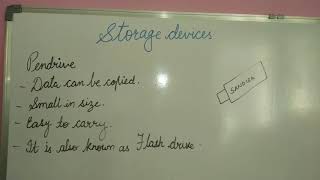 Storage devices
Pendrive
- Data can be copied.
- Small in size.
- Easy to carry.
- It is also known as Flash drive.
SANDISK